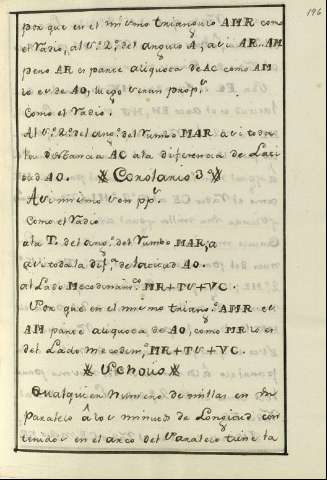 196
por que en el mismo triangulo AMR como
el Radio, al S.º 2.º del angulo A; asi AR..AM
pero AR es parte aliquota de AC como AM
lo es de AO, luego seran prop.s
Como el Radio.
Al S.º 2.º del ang.º del Rumbo MAR asi toda
la distancia AC ala diferencia de Lati
tud AO. Corolario 3.º
Asi mismo son pp.s
Como el Radio
ala T. del ang.º del Rumbo MAR, a
asi toda la dif.a de latitud AO.
al Lado Mecodinam.co MR+TV+VC.
Por que en el mismo triang.º AMR es
AM parte aliquota de AO, como MR lo es
del Lado mecodin.º MR+TV+VC.
Scholio
Qualquier numero de millas en
Paralelo á los minutos de Longitud con
tenidos en el arco del Paralelo tiene la